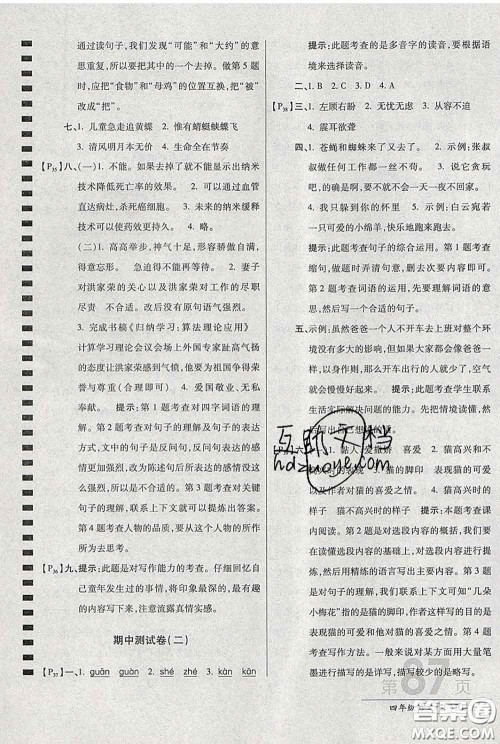 通过读句子,我们发现“可能”和“大约”的意
思重复,所以要把其中的一个去掉。做第 5 题
时,应把“食物”和“母鸡”的位置互换,把“被”
改成“把”。
七、1. 儿童急走追黄蝶 2. 惟有蜻蜓蛱蝶飞
3. 清风明月本无价 4. 生命在于运动
【P35】八、(一)1. 不能。如果去掉了就不能显示出纳米
技术降低死亡率的效果。 2. 可以通过血管
直达病灶,杀死癌细胞。 3. 未来的纳米缓释
技术可以使药效更持久。
(二)1. 高高举步,神气十足,形容骄傲自满、
得意忘形。 急迫得不再能等。 2. 妻子
对洪家荣的关心以及洪家荣对工作的尽职
尽责 不合适。改后没有原句语气强烈。
3. 完成书稿《归纳学习:算法理论应用》
计算学习理论会议会场上外国专家趾高气扬
的态度让洪家荣感到气愤,他要为祖国争得荣
誉与尊严(合理即可) 4. 爱国敬业、无私
奉献。 提示:第 1 题考查对四字词语的理
解。第 2 题考查对句子的理解及句子的表达
方式,文中的句子是反问句,反问句表达的感
情更为强烈,改为陈述句后所表达的感情没有
以前强烈,所以是不合适的。第 3 题考查对文
章的理解,联系上下文就可以提炼出答案。
第 4 题考查人物的品质,要从人物的所作
所为去回答。
【P36】九、提示:此题是对写作能力的考查。仔细回忆自
己童年发生过的事情,将印象最深的、最有意
思的写出来,注意流露真情实感。
期中测试卷(二)
【P37】一、1. quàn guān 2. shé zhé 3. kàn kān
提示:此题考查的是多音字的读音,要根据语
境来选择读音。
二、1. B 2. C 3. D 4. A
【P38】三、1. 左顾右盼 2. 无忧无虑 3. 从容不迫
4. 震耳欲聋
四、1. 苍蝇和蜘蛛来了。 2. 示例:张叔
叔做任何工作都一丝不苟。 3. 说它贪玩
吧,的确是呀,要不怎么会一天一夜不回家呢?
4. 我只躲到你的怀里。 5. 示例:白云宛若
可爱的小绵羊,快乐地跑来跑去。
提示:此题考查句子的综合运用。第 1 题考查
缩句,做题时弄清句意,删去不必要的内容。
第 2 题考查词语的运用,先要理解词语的意
思,并造出合适的句子。
五、示例:虽然爸爸一个人不开车去上班对整个环境
没有多大的影响,但我们要从自己做起,
以身作则,那么开车出行的人就少了,空气也就
能变好了。 提示:此题考查学生联系
生活实际解决问题的能力。先把情境读懂,然
后写出自己想说的话。
1. 黏人 爱撒娇 喜爱 2. 表现猫的可爱
和作者对猫的喜爱之情。 3. 猫高兴时的
样子 作者对猫的喜爱之情。 4. 猫高兴时
的样子 猫非常可爱 提示:此题考查课内
阅读。第 2 题是对选段内容的概括,我们要
在理解选段内容的基础上,对选段内容进行概
括,然后用精练的语言写出来。第 3 题考查对
句子的理解,我们要从“几朵小梅花”体会到这
是指猫的脚印,表现了猫的可爱和作者对猫的
喜爱之情。第 4 题考查写作方面的知识,哪
方面描写得多,用大量的笔墨进行描写的就是
详写,反之则是略写。
第87页
四年级
互联文档
hdzuoyewom
答案圈
MXQE.COM